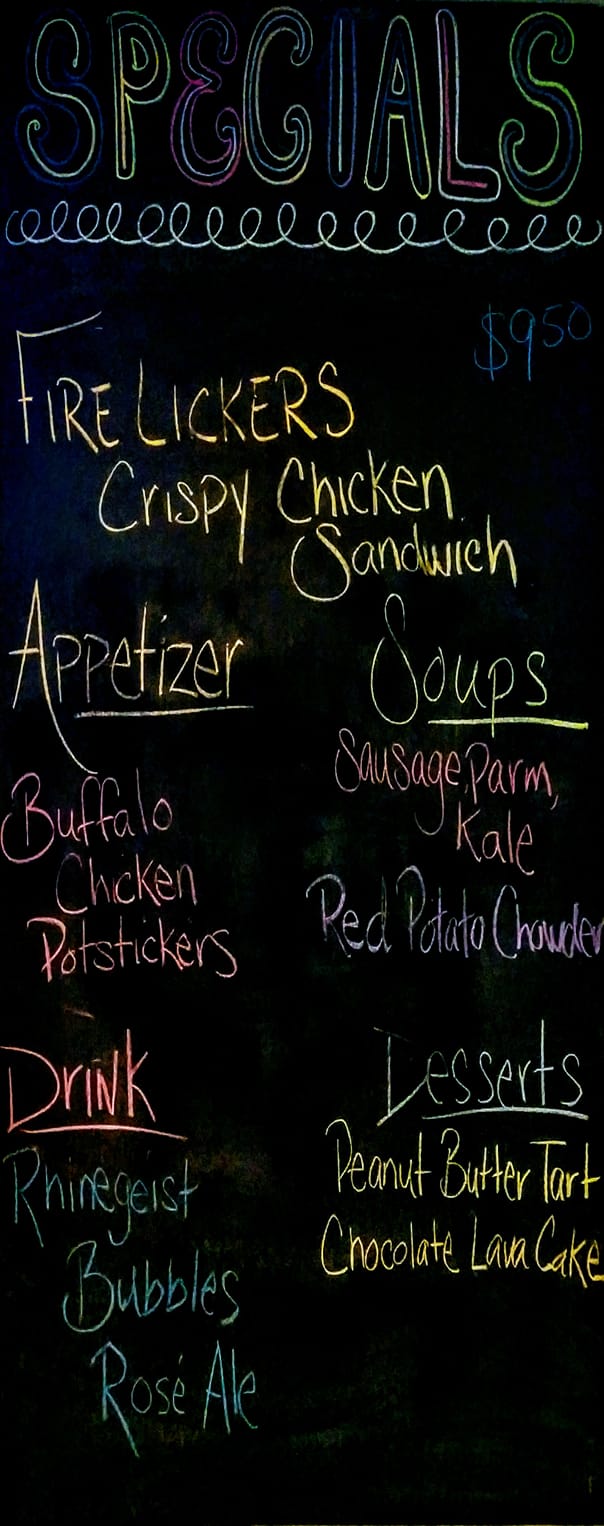 SPECIALS
$950
FIRE LICKERS
Crispy Chicken
Sandwich
Appetizer
Buffalo
Chicken
Potstickers
Soups
Sausage, Parm,
Kale
Red Potato Chowder
Drink
Rhinegeist
Bubbles
Rosé Ale
Desserts
Peanut Butter Tart
Chocolate Lava Cake